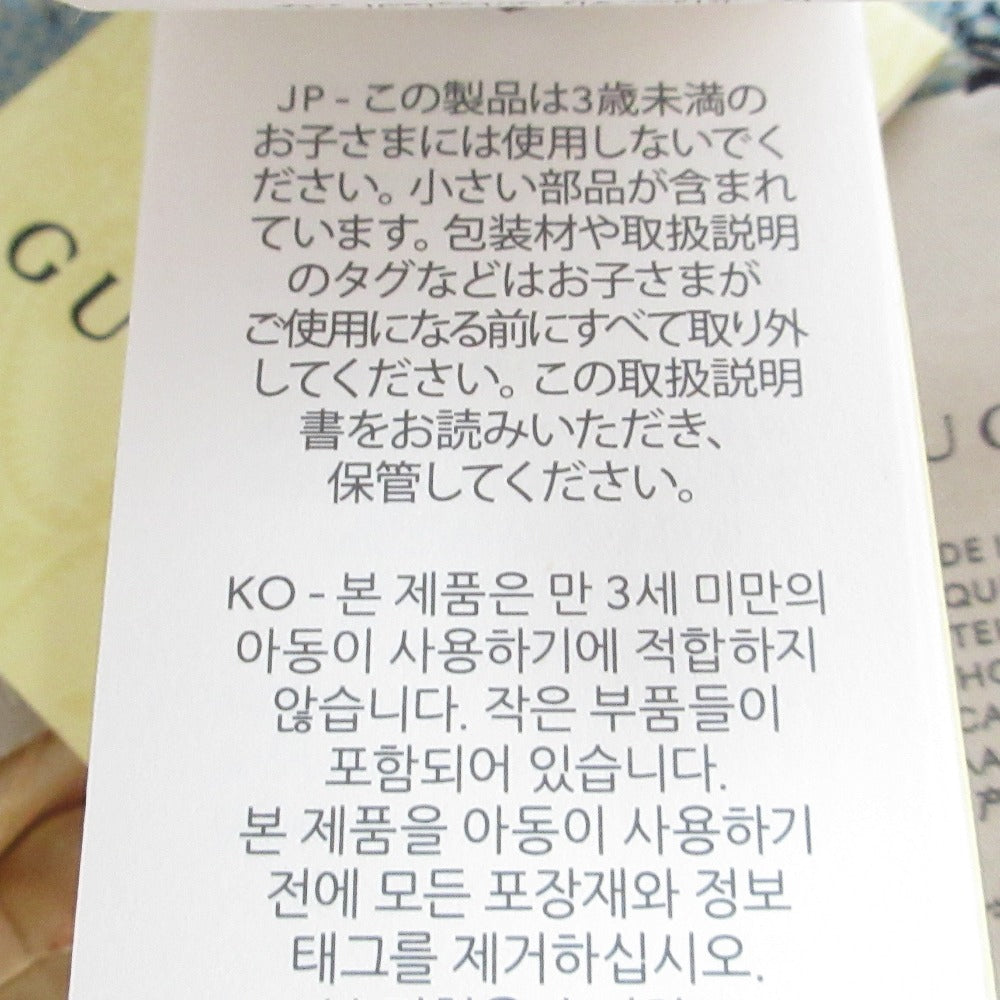 JP - この製品は3歳未満の
お子さまには使用しないでく
ださい。小さい部品が含まれ
ています。包装材や取扱説明
のタグなどはお子さまが
ご使用になる前にすべて取り外
してください。この取扱説明
書をお読みいただき、
保管してください。
KO - 본 제품은 만 3세 미만의
아동이 사용하기에 적합하지
않습니다. 작은 부품들이
포함되어 있습니다.
본 제품을 아동이 사용하기
전에 모든 포장재와 정보
태그를 제거하십시오.
GU
U
DE
QU
TE
HO
CA